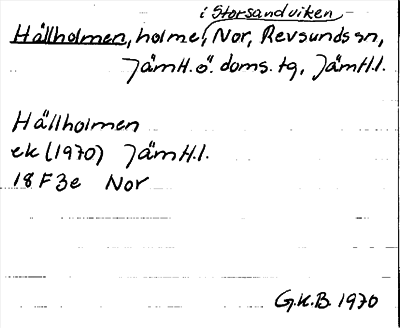 i Storsandviken
Hällholmen, holme, Nor, Revsunds sn,
Jämtl. ö. doms. tg, Jämtl. l.
Hällholmen
ek (1970) Jämtl. l.
18 F 3e Nor
G.K.B. 1970